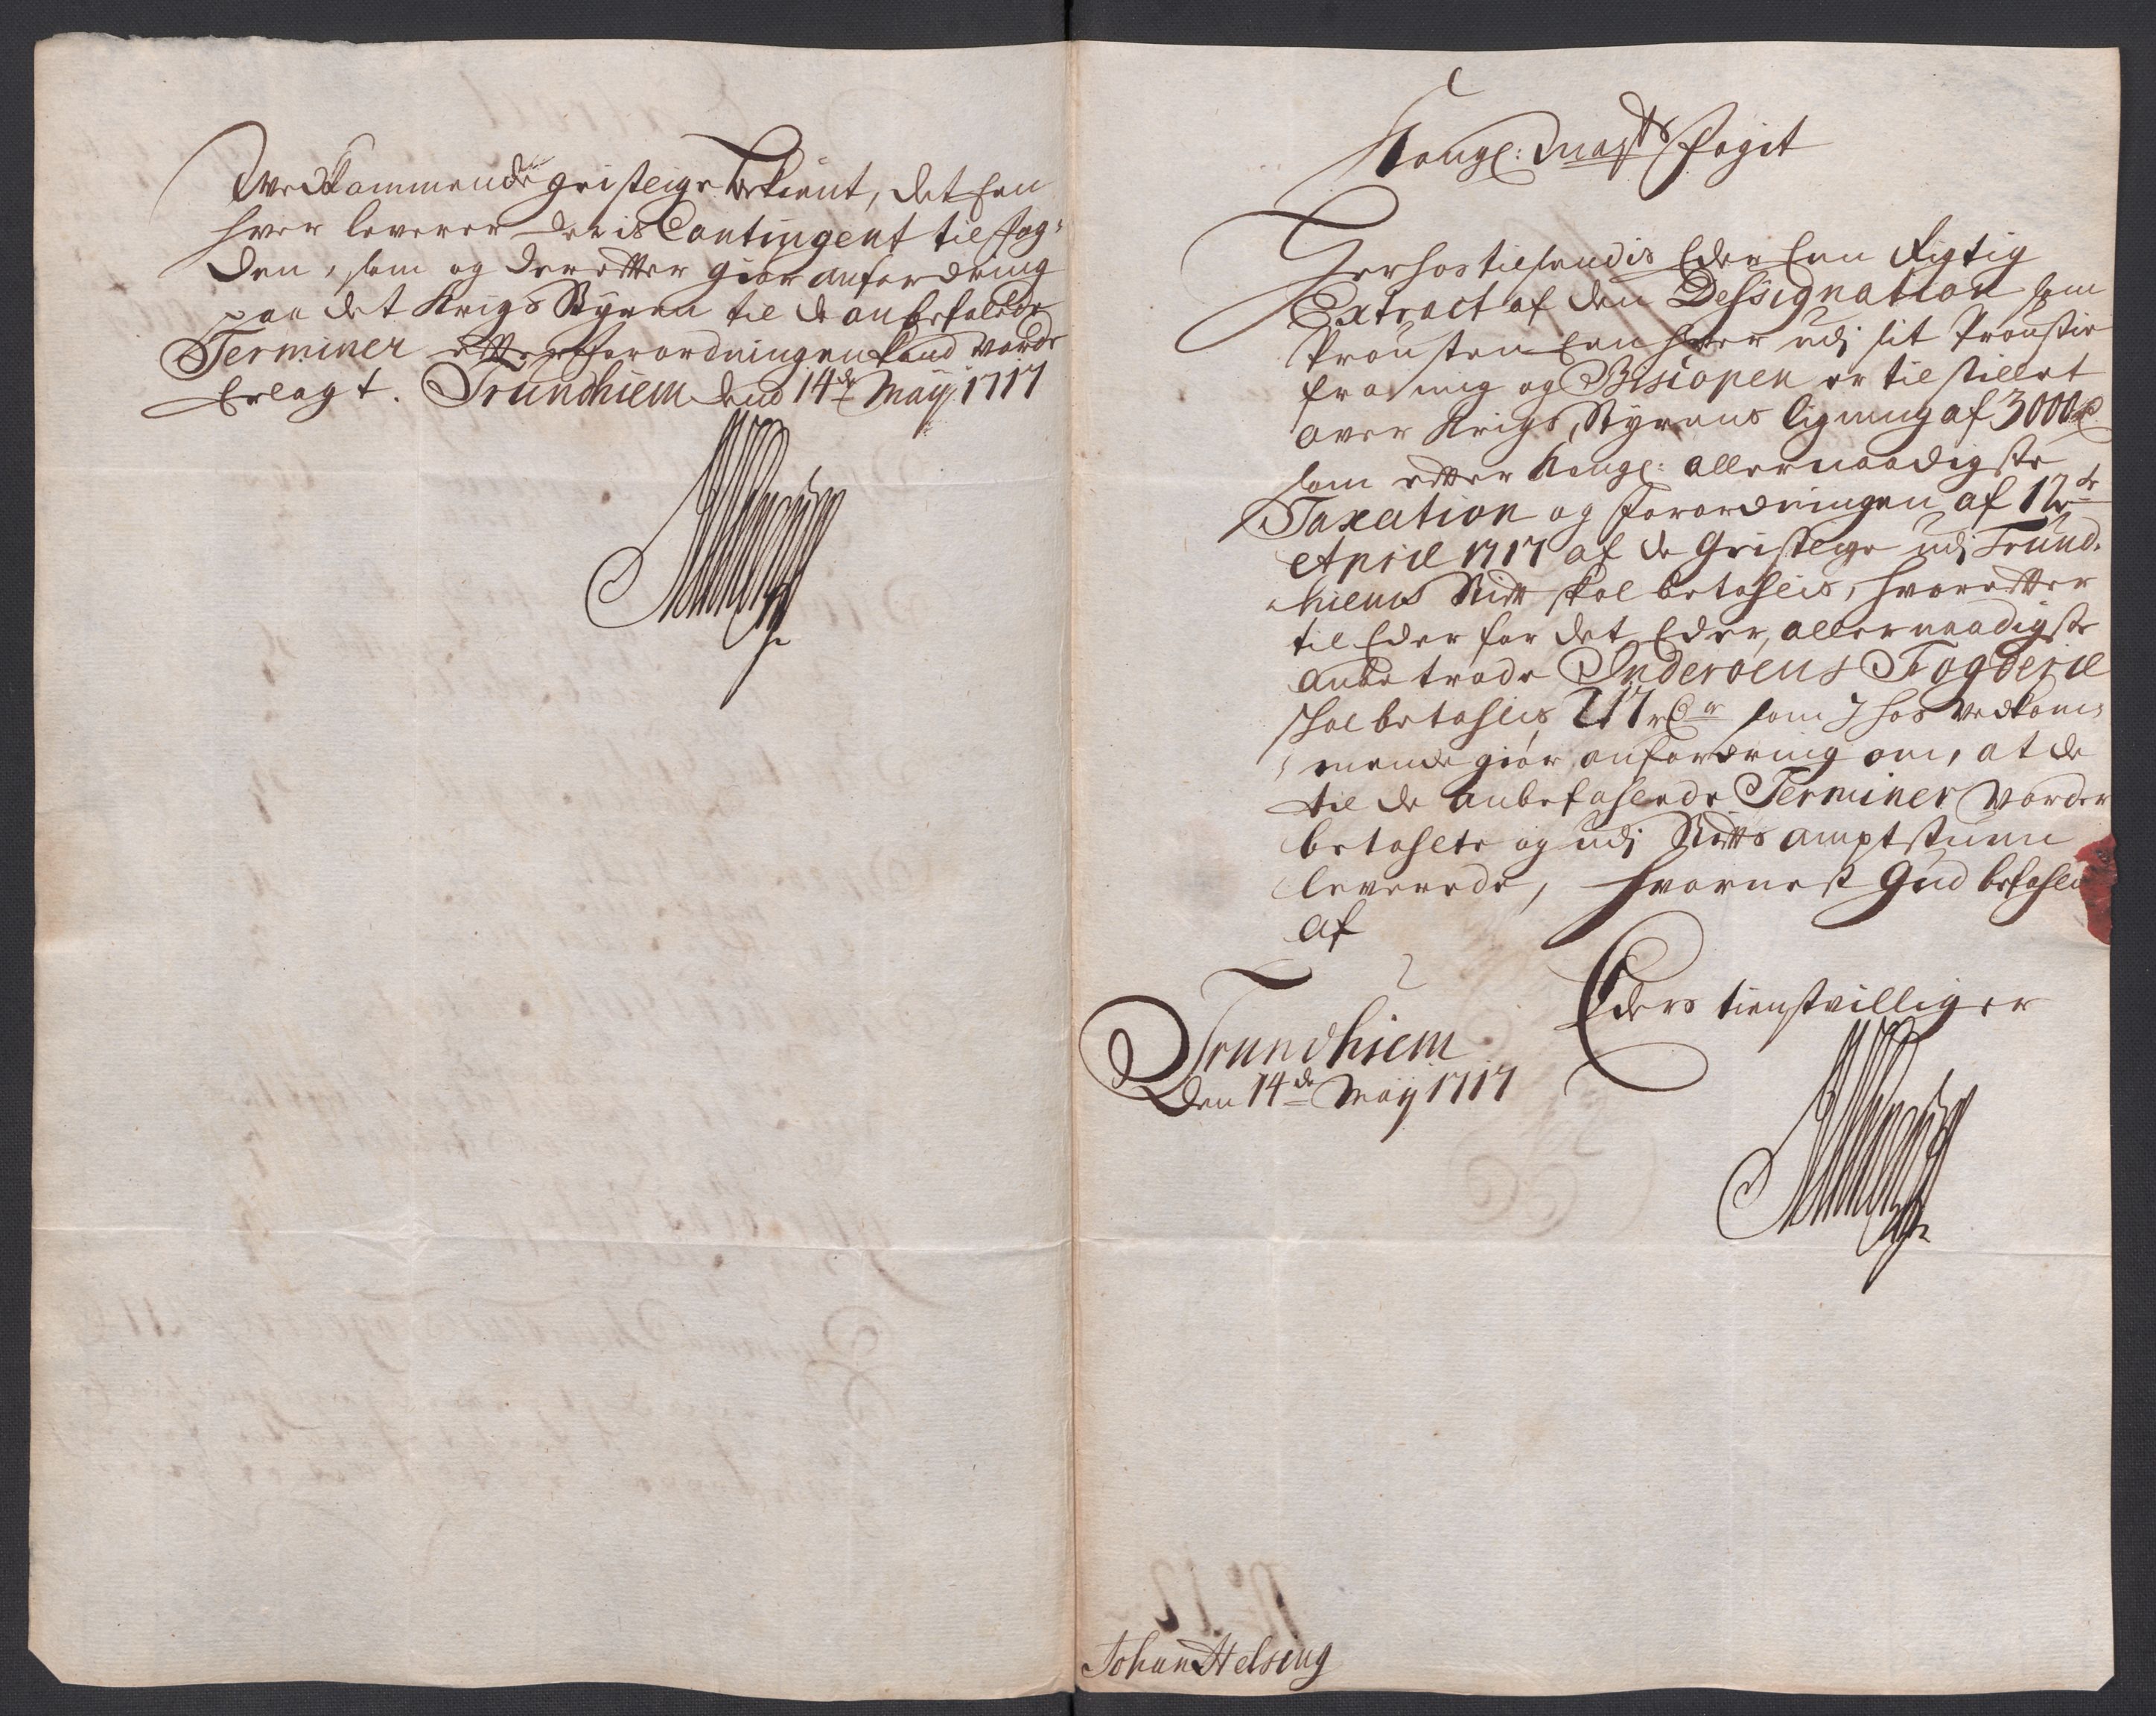 Vedkommende geistlige bekient, det een
hver leverer deris Contingent til fog-
den, som og derefter giør anfordring
paa det Krigs Styren til de anbefalede
Terminer efter forordningen kand vorde
Erlagt. Trundhiem dend 14de Maÿ 1717
Kongl: Maÿts Fogit
Herhos tilsendis Eder Een Rigtig
Extract af den Dessignation som
Prousten Een hver udj sitProustie
fra mig og Biscopen er tilstillet
over Krigs Styrens ligning af 3000 rd
som efter Kongl: allernaadigste
Taxation og Forordningen af 12te
April 1717 af de Geistlige udj Trund-
hiems Stift skal betahlis, hvorefter
til Eder for det Eder allernaadigst
anbetrode Inderøens Fogderie
skal betahlis 217 rdr som I hos vedkom-
mende giør anfordring om, at de
til de anbefahlede Terminer vorder
betahlte og udj Stifts amptstuen
leverede, hvornest Gud befahlet
af
Eders tienstvilliger
Trundhiem
Den 14de Maÿ 1717
No 12
Johan Helsing